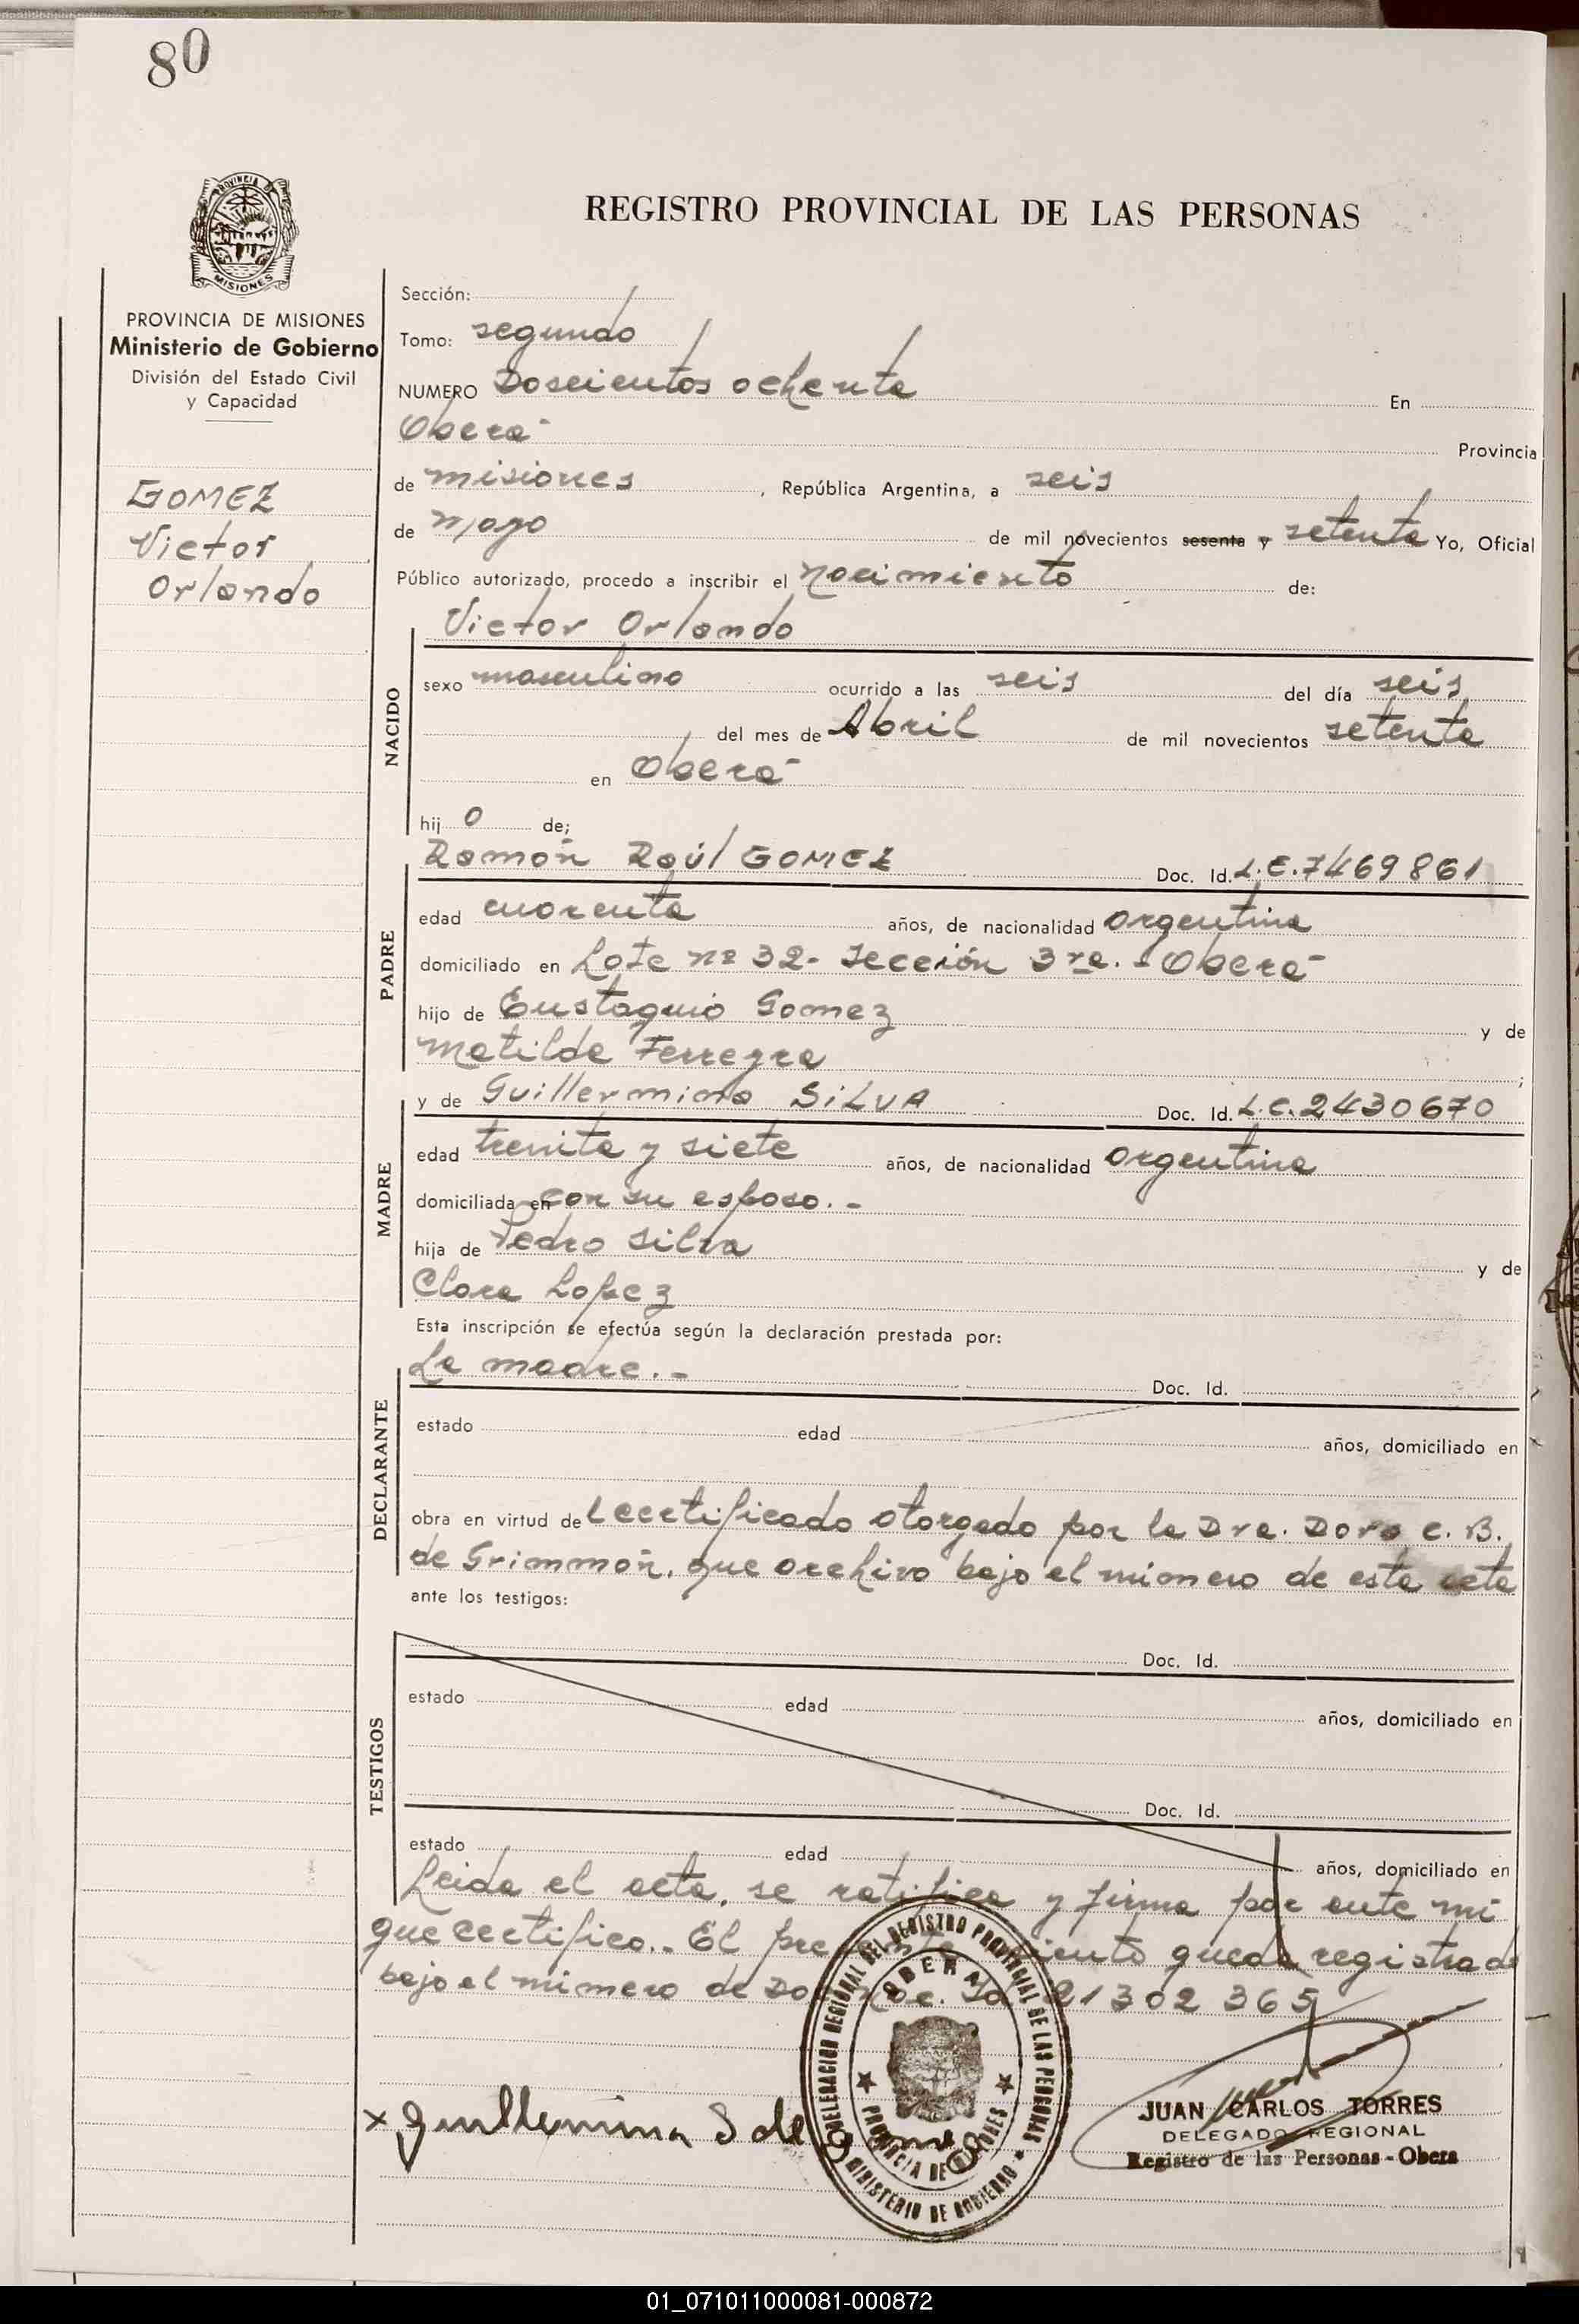 80
REGISTRO PROVINCIAL DE LAS PERSONAS
PROVINCIA DE
MISIONES
PROVINCIA DE MISIONES
Ministerio de Gobierno
División del Estado Civil
y Capacidad
GOMEZ
Victor
Orlando
Sección:
Tomo: segundo
NUMERO Doscientos ochenta En
Oberá
Provincia
de misiones, República Argentina, a seis
de mayo de mil novecientos sesenta y setenta Yo, Oficial
Público autorizado, procedo a inscribir el nacimiento de:
Victor Orlando
NACIDO
sexo masculino ocurrido a las seis del día seis
del mes de Abril de mil novecientos setenta
en Oberá
hij o de;
Ramón Raúl GOMEZ Doc. Id. L.E.7469861
PADRE
edad cuarenta años, de nacionalidad argentina
domiciliado en Lote nº 32- Sección 3ra. - Oberá
hijo de Eustaquio Gomez y de
Matilde Ferreyra ;
y de Guillermina SiLVA Doc. Id. L.C.2430670
MADRE
edad treinta y siete años, de nacionalidad argentina
domiciliada en con su esposo.-
hija de Pedro Silva y de
Clara Lopez
Esta inscripción se efectúa según la declaración prestada por:
La madre.- Doc. Id.
DECLARANTE
estado edad años, domiciliado en
obra en virtud del certificado otorgado por la Dra. Dora C. B.
de Grimmón, que archivo bajo el número de esta acta
ante los testigos:
Doc. Id.
TESTIGOS
estado edad años, domiciliado en
Doc. Id.
estado edad años, domiciliado en
Leida el acta, se ratifica y firma por ante mi
que certifico.- El queda registrado
bajo el número de 21302365
DELEGACION REGIONAL DEL REGISTRO PROVINCIAL DE LAS PERSONAS
OBERA
PROVINCIA DE MISIONES
MINISTERIO DE GOBIERNO
x Guillermina S de Gomez
JUAN CARLOS TORRES
DELEGADO REGIONAL
Registro de las Personas - Obera
01_071011000081-000872